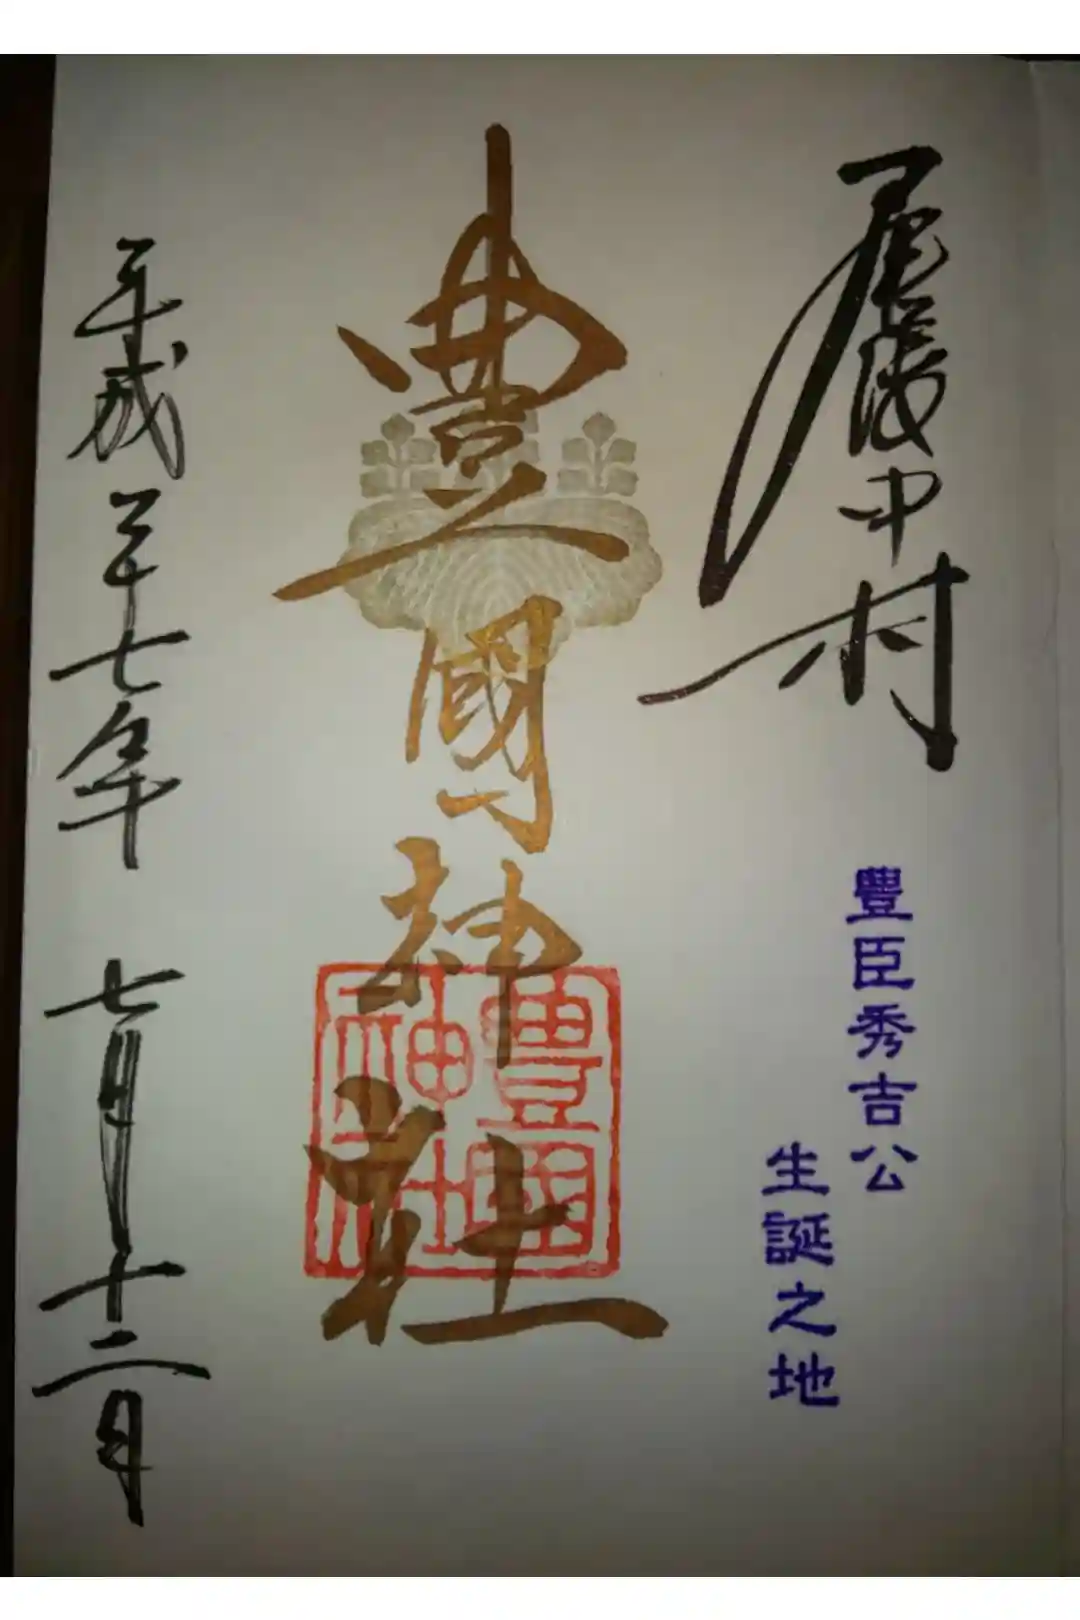 尾張中村
豊臣秀吉公
生誕之地
豊國神社
豊國神社
平成二十七年 七月十二日